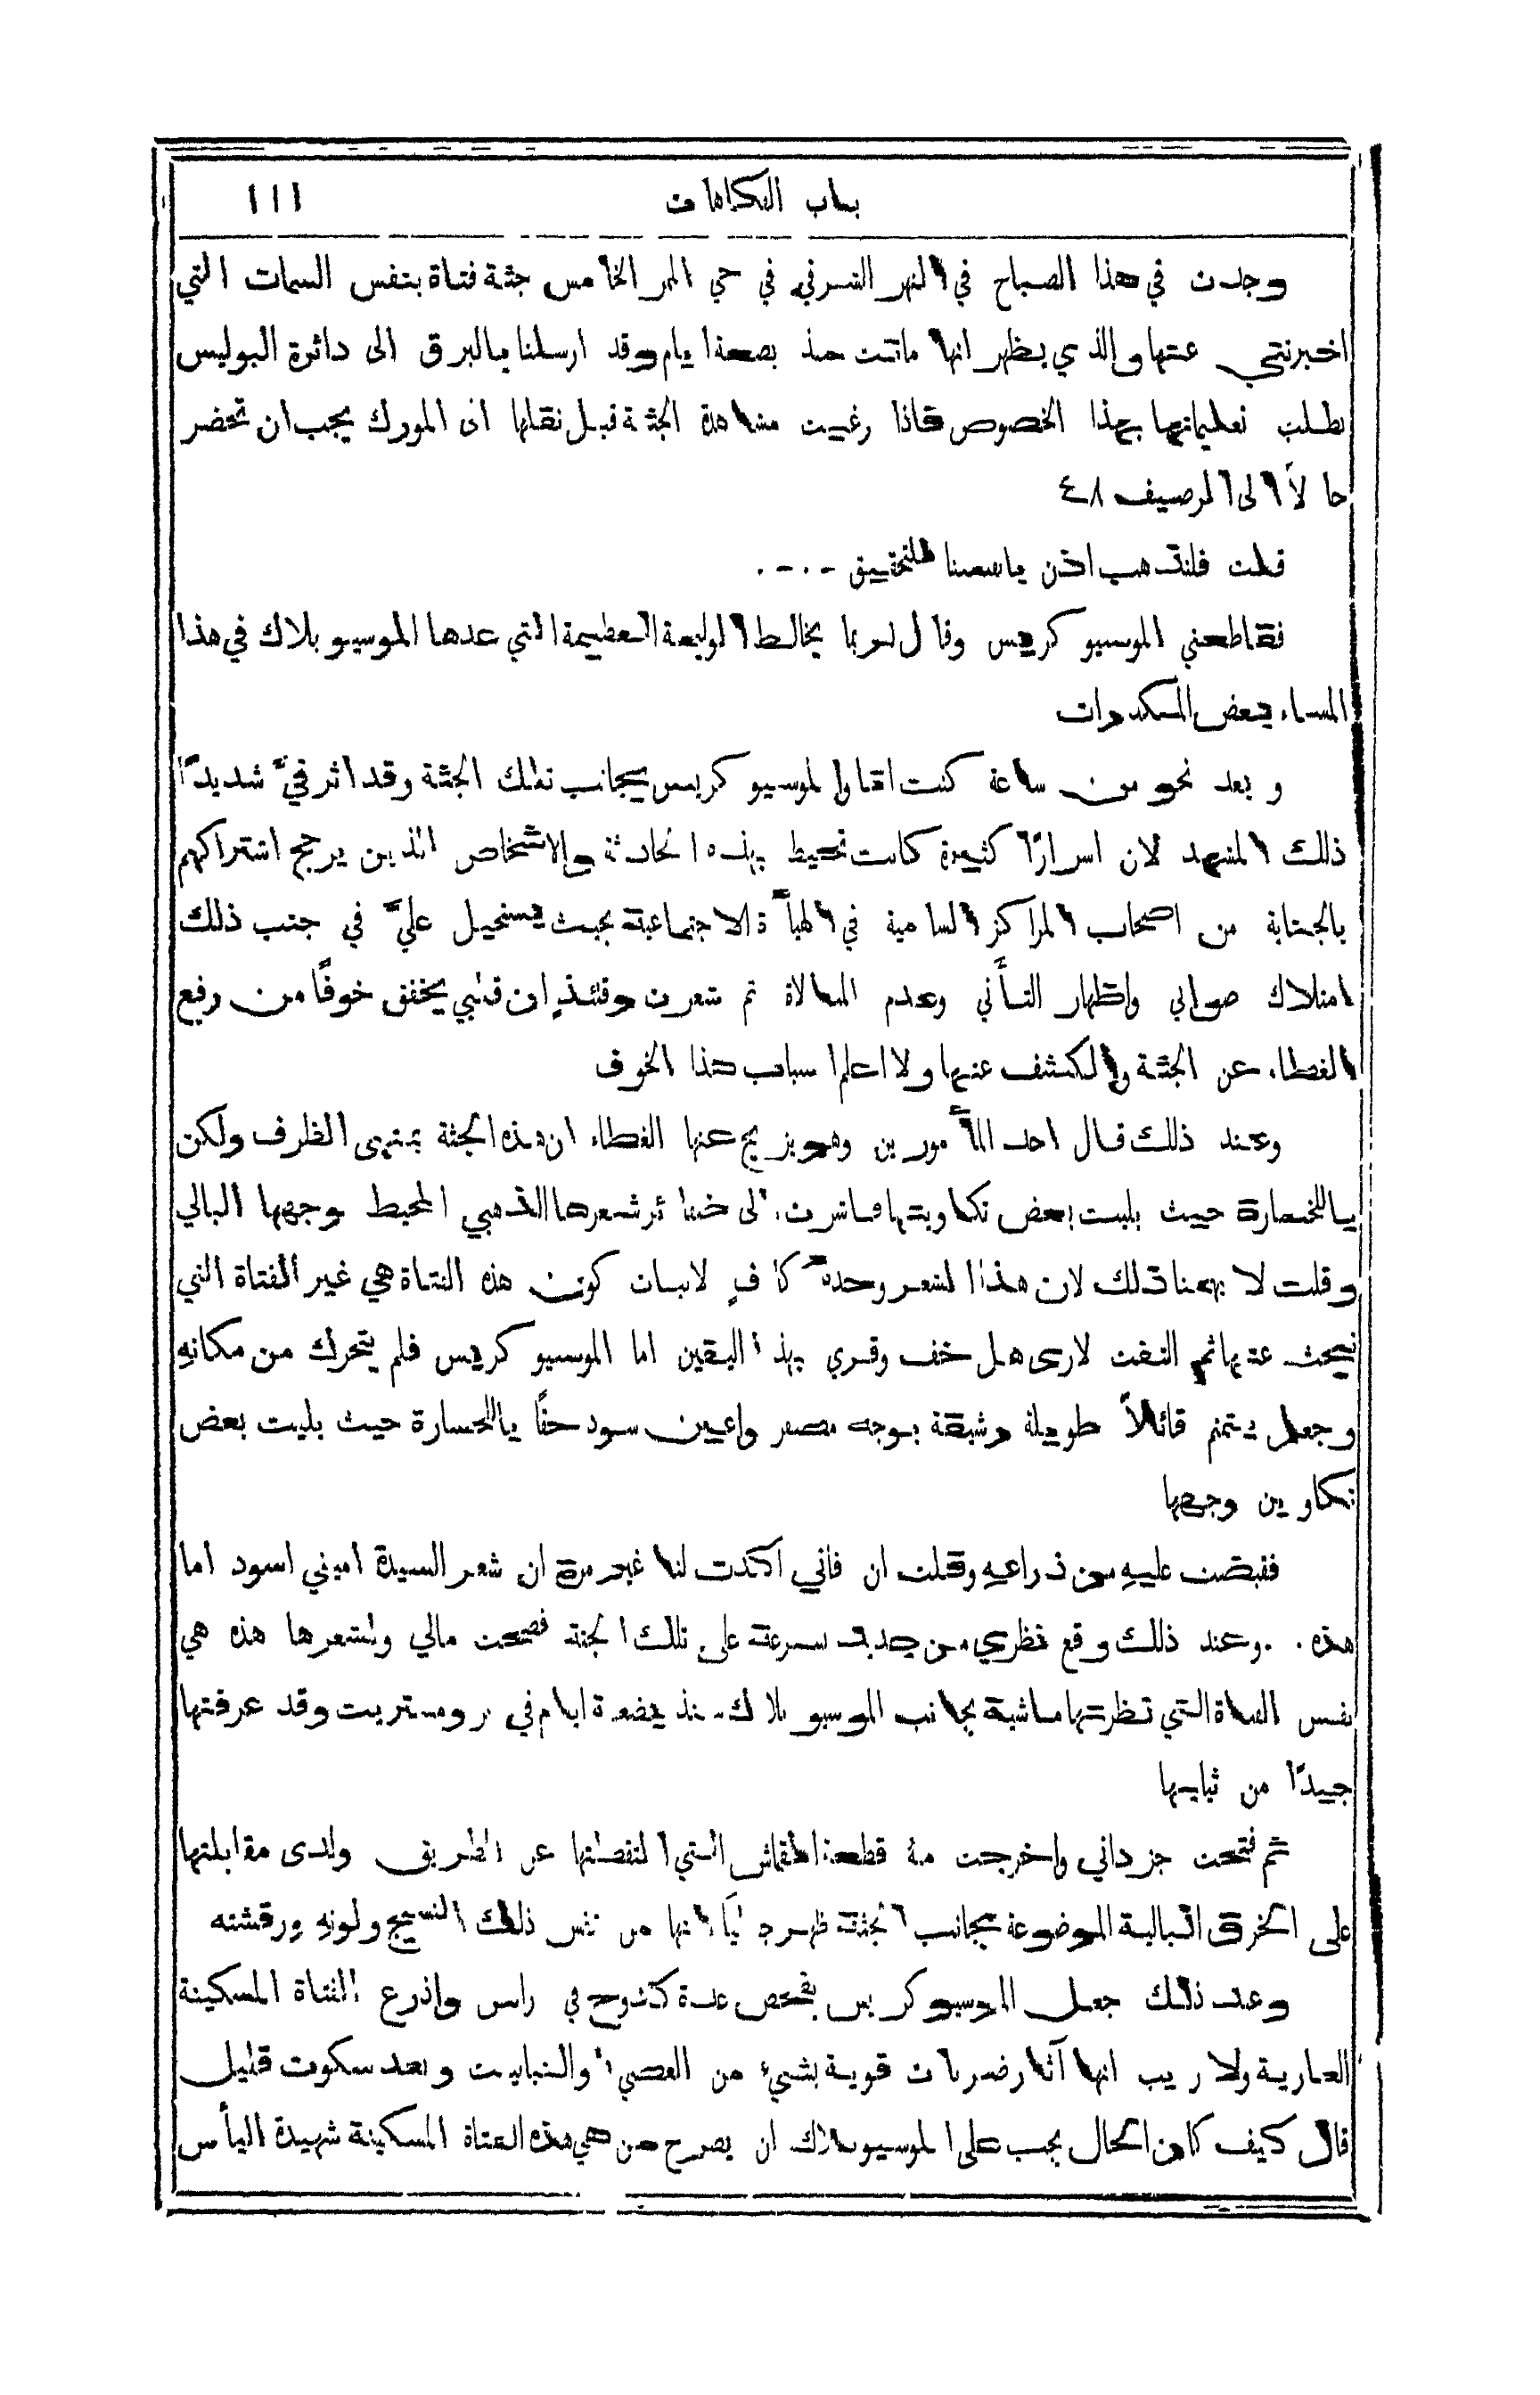 باب الفكاهات ١١١
وجدت في هذا الصباح في النهر الشرقي في حي الممر الخامس جثة فتاة بنفس السمات التي
اخبرتني عنها والذي يظهر انها ماتت منذ بضعة ايام وقد ارسلنا بالبرق الى دائرة البوليس
نطلب تعليماتها بهذا الخصوص فاذا رغبت مشاهدة الجثة قبل نقلها الى المورك يجب ان تحضر
حالاً الى الرصيف ٤٨
قلت فلنذهب اذن بانفسنا للتحقيق ....
فقاطعني الموسيو كريس وقال لربما يخالط الوليمة العظيمة التي عدها الموسيو بلاك في هذا
المساء بعض المكدرات
وبعد نحو من ساعة كنت انا والموسيو كريس بجانب تلك الجثة وقد اثر فيَّ شديدًا
ذلك المشهد لان اسرارًا كثيرة كانت تحيط بهذه الحادثة والاشخاص الذين يرجح اشتراكهم
بالجناية من اصحاب المراكز السامية في الهيأة الاجتماعية بحيث يستحيل عليَّ في جنب ذلك
امتلاك صوابي واظهار التأني وعدم المبالاة ثم شعرت وقتئذٍ ان قلبي يخفق خوفًا من رفع
الغطاء عن الجثة والكشف عنها ولا اعلم اسباب هذا الخوف
وعند ذلك قال احد المأمورين وهو يزيح عنها الغطاء ان هذه الجثة بمنتهى الظرف ولكن
ياللخسارة حيث بليت بعض تكاوينها فاشرت الى ضفائر شعرها الذهبي المحيط بوجهها البالي
وقلت لا يهمنا ذلك لان هذا الشعر وحدهُ كافٍ لاثبات كون هذه الفتاة هي غير الفتاة التي
نبحث عنها ثم التفت لارى هل خف وقري بهذا اليقين اما الموسيو كريس فلم يتحرك من مكانهِ
وجعل يتمتم قائلاً طويلة رشيقة بوجه مصفر واعين سود حقًا ياللخسارة حيث بليت بعض
تكاوين وجهها
فقبضت عليهِ من ذراعهِ وقلت ان فاني اكدت لنا غير مرة ان شعر السيدة اميني اسود اما
هذه . . وعند ذلك وقع نظري من جديد بسرعة على تلك الجثة فصحت مالي ولشعرها هذه هي
نفس الفتاة التي نظرتها ماشية بجانب الموسيو بلاك منذ بضعة ايام في برومستريت وقد عرفتها
جيدًا من ثيابها
ثم فتحت جزداني واخرجت منهُ قطعة القماش التي التقطتها عن الطريق ولدى مقابلتها
على الخرق البالية الموضوعة بجانب الجثة ظهر جليًا انها من نفس ذلك النسيج ولونهِ ورقشته
وعند ذلك جعل الموسيو كريس يفحص عدة كدوح في راس واذرع الفتاة المسكينة
العارية ولا ريب انها آثار ضربات قوية بشيء من العصي والنبابيت وبعد سكوت قليل
قال كيف كان الحال يجب على الموسيو بلاك ان يصرح من هي هذه الفتاة المسكينة شهيدة اليأس